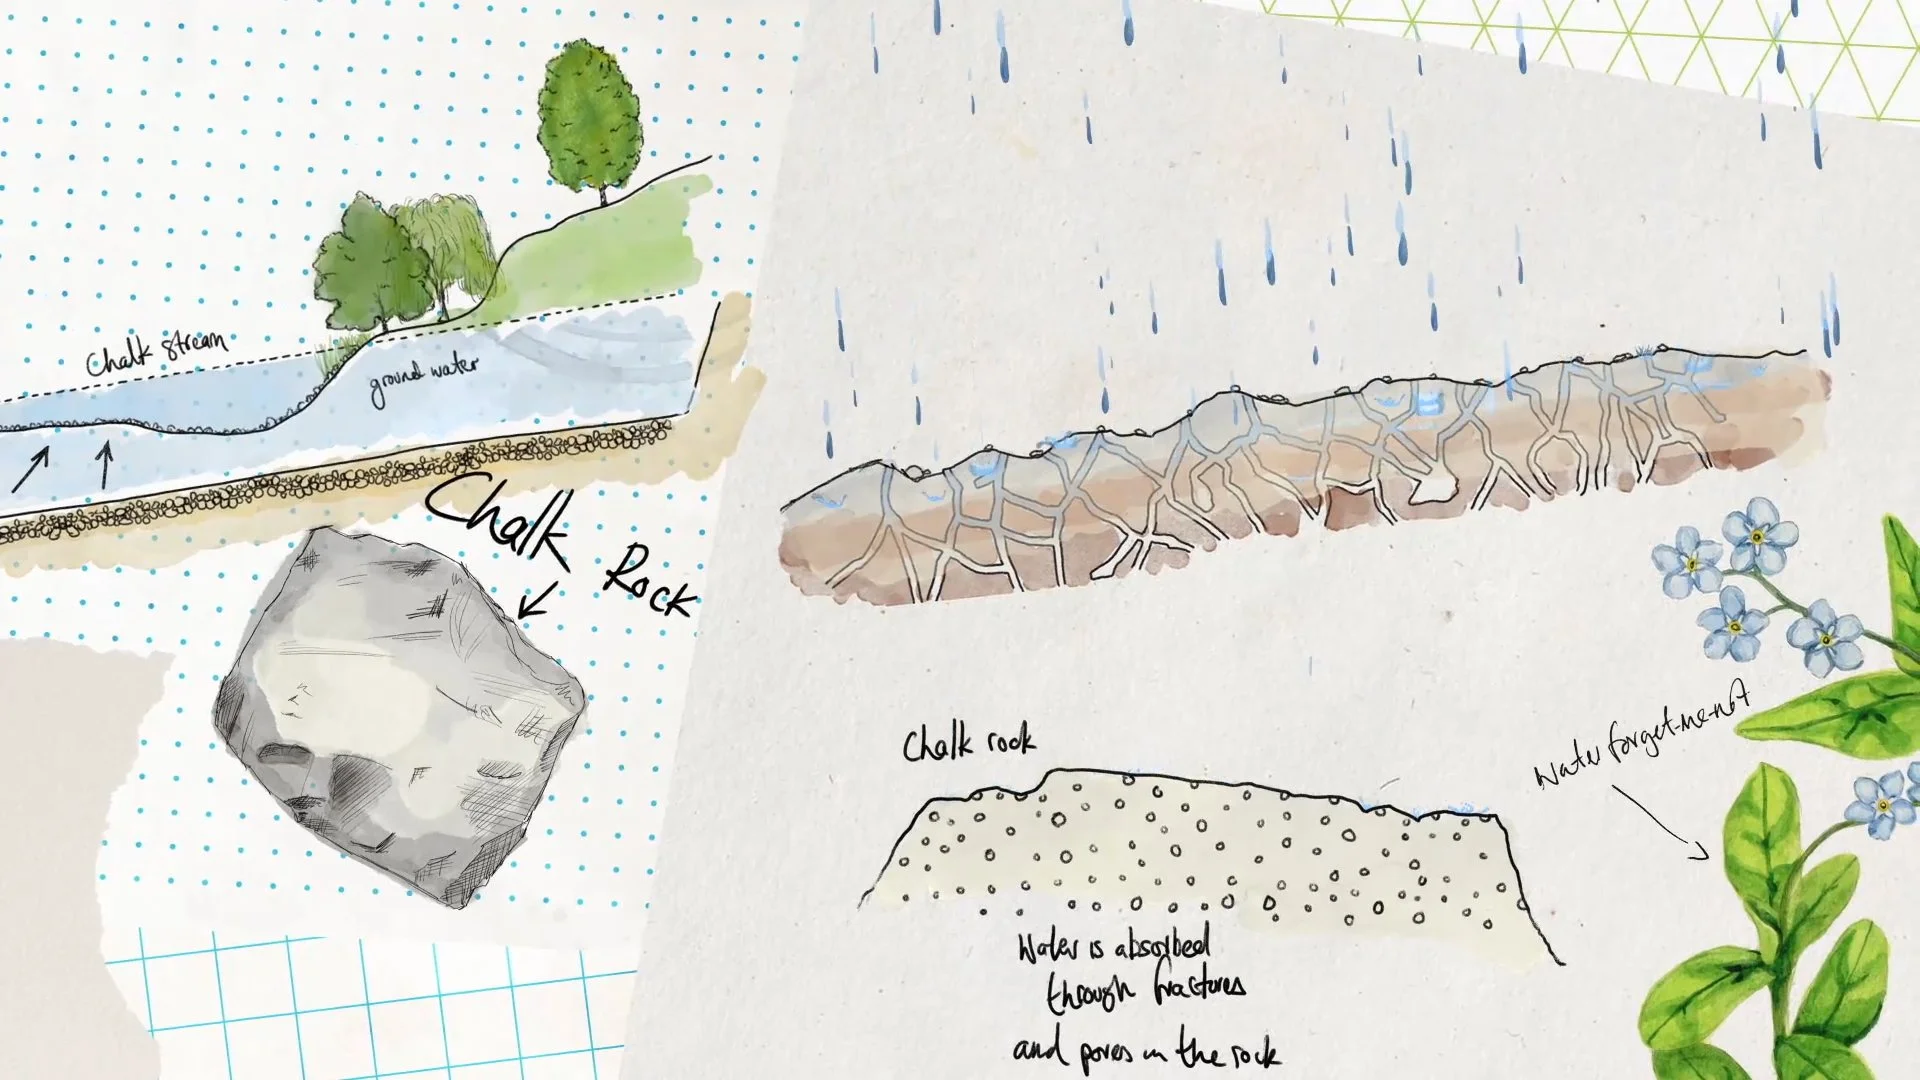 Chalk stream
ground water
Chalk Rock
Chalk rock
Water is absorbed
through fractures
and pores in the rock
Water forget-me-not